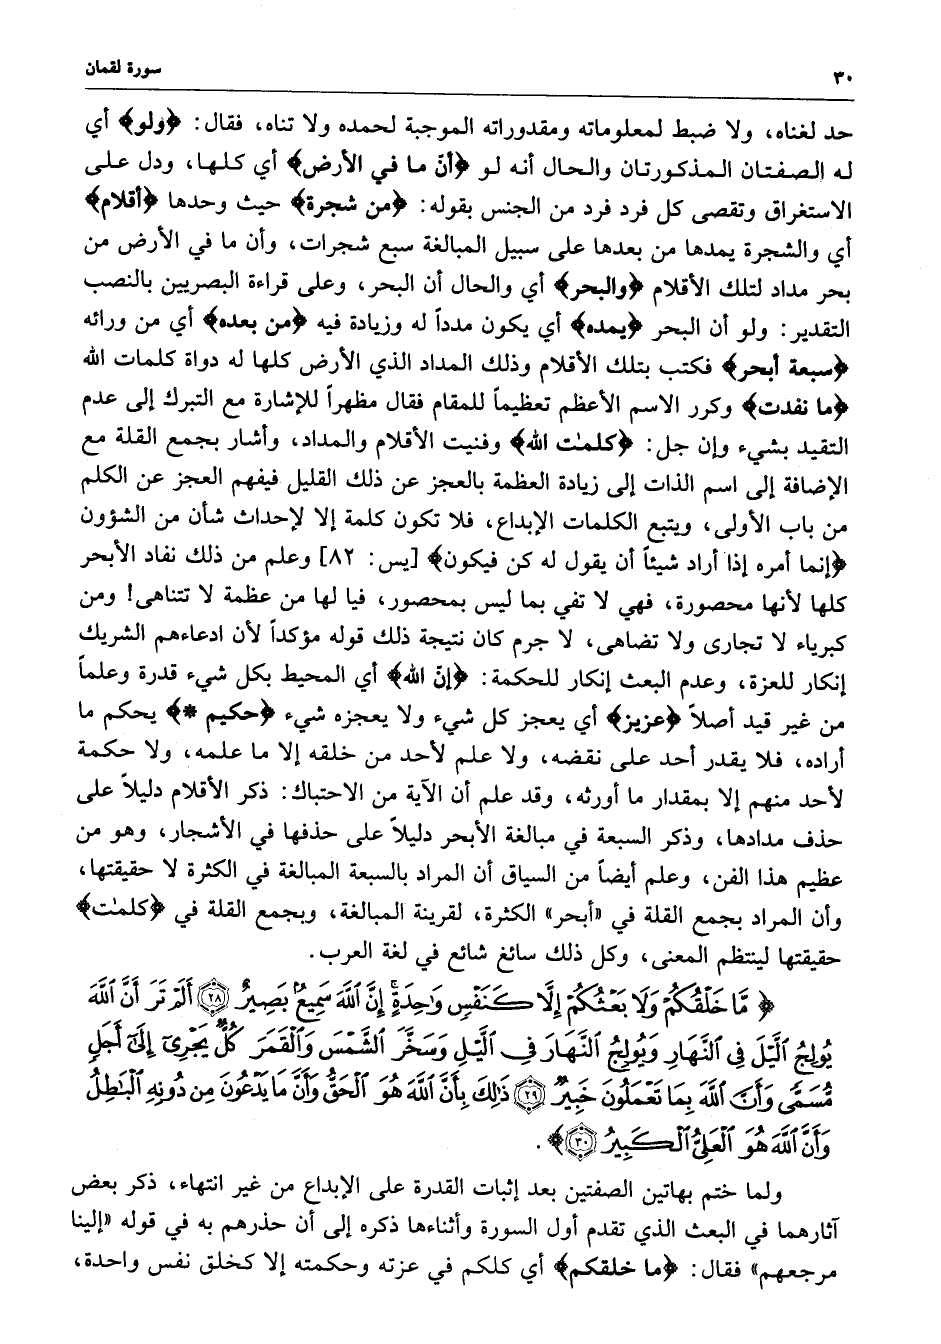 ٣٠ سورة لقمان
حد لغناه، ولا ضبط لمعلوماته ومقدوراته الموجبة لحمده ولا تناه، فقال: ﴿ولو﴾ أي
له الصفتان المذكورتان والحال أنه لو ﴿أنّ ما في الأرض﴾ أي كلها، ودل على
الاستغراق وتقصى كل فرد فرد من الجنس بقوله: ﴿من شجرة﴾ حيث وحدها ﴿أقلام﴾
أي والشجرة يمدها من بعدها على سبيل المبالغة سبع شجرات، وأن ما في الأرض من
بحر مداد لتلك الأقلام ﴿والبحر﴾ أي والحال أن البحر، وعلى قراءة البصريين بالنصب
التقدير: ولو أن البحر ﴿يمده﴾ أي يكون مدداً له وزيادة فيه ﴿من بعده﴾ أي من ورائه
﴿سبعة أبحر﴾ فكتب بتلك الأقلام وذلك المداد الذي الأرض كلها له دواة كلمات الله
﴿ما نفدت﴾ وكرر الاسم الأعظم تعظيماً للمقام فقال مظهراً للإشارة مع التبرك إلى عدم
التقيد بشيء وإن جل: ﴿كلمٰت الله﴾ وفنيت الأقلام والمداد، وأشار بجمع القلة مع
الإضافة إلى اسم الذات إلى زيادة العظمة بالعجز عن ذلك القليل فيفهم العجز عن الكلم
من باب الأولى، ويتبع الكلمات الإبداع، فلا تكون كلمة إلا لإحداث شأن من الشؤون
﴿إنما أمره إذا أراد شيئاً أن يقول له كن فيكون﴾ [يس: ٨٢] وعلم من ذلك نفاد الأبحر
كلها لأنها محصورة، فهي لا تفي بما ليس بمحصور، فيا لها من عظمة لا تتناهى! ومن
كبرياء لا تجارى ولا تضاهى، لا جرم كان نتيجة ذلك قوله مؤكداً لأن ادعاءهم الشريك
إنكار للعزة، وعدم البعث إنكار للحكمة: ﴿إنّ الله﴾ أي المحيط بكل شيء قدرة وعلماً
من غير قيد أصلاً ﴿عزيز﴾ أي يعجز كل شيء ولا يعجزه شيء ﴿حكيم *﴾ يحكم ما
أراده، فلا يقدر أحد على نقضه، ولا علم لأحد من خلقه إلا ما علمه، ولا حكمة
لأحد منهم إلا بمقدار ما أورثه، وقد علم أن الآية من الاحتباك: ذكر الأقلام دليلاً على
حذف مدادها، وذكر السبعة في مبالغة الأبحر دليلاً على حذفها في الأشجار، وهو من
عظيم هذا الفن، وعلم أيضاً من السياق أن المراد بالسبعة المبالغة في الكثرة لا حقيقتها،
وأن المراد بجمع القلة في «أبحر» الكثرة، لقرينة المبالغة، وبجمع القلة في ﴿كلمٰت﴾
حقيقتها لينتظم المعنى، وكل ذلك سائغ شائع في لغة العرب.
﴿ مَّا خَلْقُكُمْ وَلَا بَعْثُكُمْ إِلَّا كَنَفْسٍ وَٰحِدَةٍ ۗ إِنَّ ٱللَّهَ سَمِيعٌۢ بَصِيرٌ ﴿٢٨﴾ أَلَمْ تَرَ أَنَّ ٱللَّهَ
يُولِجُ ٱلَّيْلَ فِى ٱلنَّهَارِ وَيُولِجُ ٱلنَّهَارَ فِى ٱلَّيْلِ وَسَخَّرَ ٱلشَّمْسَ وَٱلْقَمَرَ كُلٌّ يَجْرِىٓ إِلَىٰٓ أَجَلٍ
مُّسَمًّى وَأَنَّ ٱللَّهَ بِمَا تَعْمَلُونَ خَبِيرٌ ﴿٢٩﴾ ذَٰلِكَ بِأَنَّ ٱللَّهَ هُوَ ٱلْحَقُّ وَأَنَّ مَا يَدْعُونَ مِن دُونِهِ ٱلْبَٰطِلُ
وَأَنَّ ٱللَّهَ هُوَ ٱلْعَلِىُّ ٱلْكَبِيرُ ﴿٣٠﴾﴾.
ولما ختم بهاتين الصفتين بعد إثبات القدرة على الإبداع من غير انتهاء، ذكر بعض
آثارهما في البعث الذي تقدم أول السورة وأثناءها ذكره إلى أن حذرهم به في قوله «إلينا
مرجعهم» فقال: ﴿ما خلقكم﴾ أي كلكم في عزته وحكمته إلا كخلق نفس واحدة،